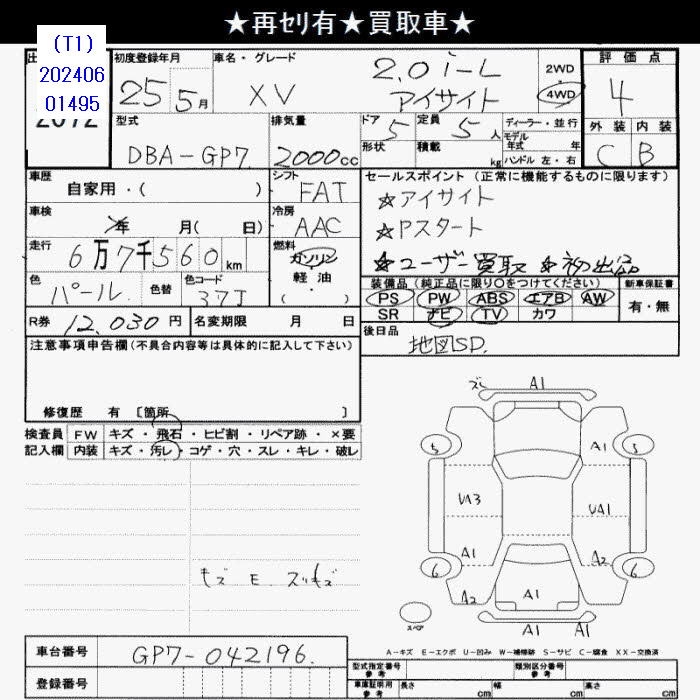 ★再セリ有★買取車★
(T1)
202406
01495
2072
初度登録年月
25 5月
車名・グレード
XV
2.0 i-L
アイサイト
2WD
4WD
評価点
4
外装 内装
C B
型式
DBA-GP7
排気量
2000cc
ドア 5
定員 5人
形状
積載 kg
ディーラー・並行
モデル年式 年
ハンドル 左・右
車歴
自家用・( )
シフト
FAT
車検
年 月( 日)
冷房
AAC
走行
6万7千560km
燃料
ガソリン
軽・油
( )
色
パール
色替
色コード
37J
R券 12,030円
名変期限 月 日
セールスポイント(正常に機能するものに限ります)
☆アイサイト
☆Pスタート
☆ユーザー買取 ☆初出品
装備品(純正品に限り○をつけてください)
PS PW ABS エアB AW
SR ナビ TV カワ
新車保証書
有・無
後日品
地図SD.
注意事項申告欄(不具合内容等は具体的に記入して下さい)
修復歴 有 〔箇所 〕
検査員 FW キズ・飛石・ヒビ割・リペア跡・×要
記入欄 内装 キズ・汚レ・コゲ・穴・スレ・キレ・破レ
キズ E. スリキズ
ズレ A1
5 A1 5
UA3 UA1
A1 A2
6 6
A2 A1
スペア
A1 A1
A-キズ E-エクボ U-凹み W-補修跡 S-サビ C-腐食 XX-交換済
車台番号 GP7-042196.
登録番号
型式指定番号 参考
類別区分番号 参考
車庫証明用 参考
長さ cm 幅 cm 高さ cm